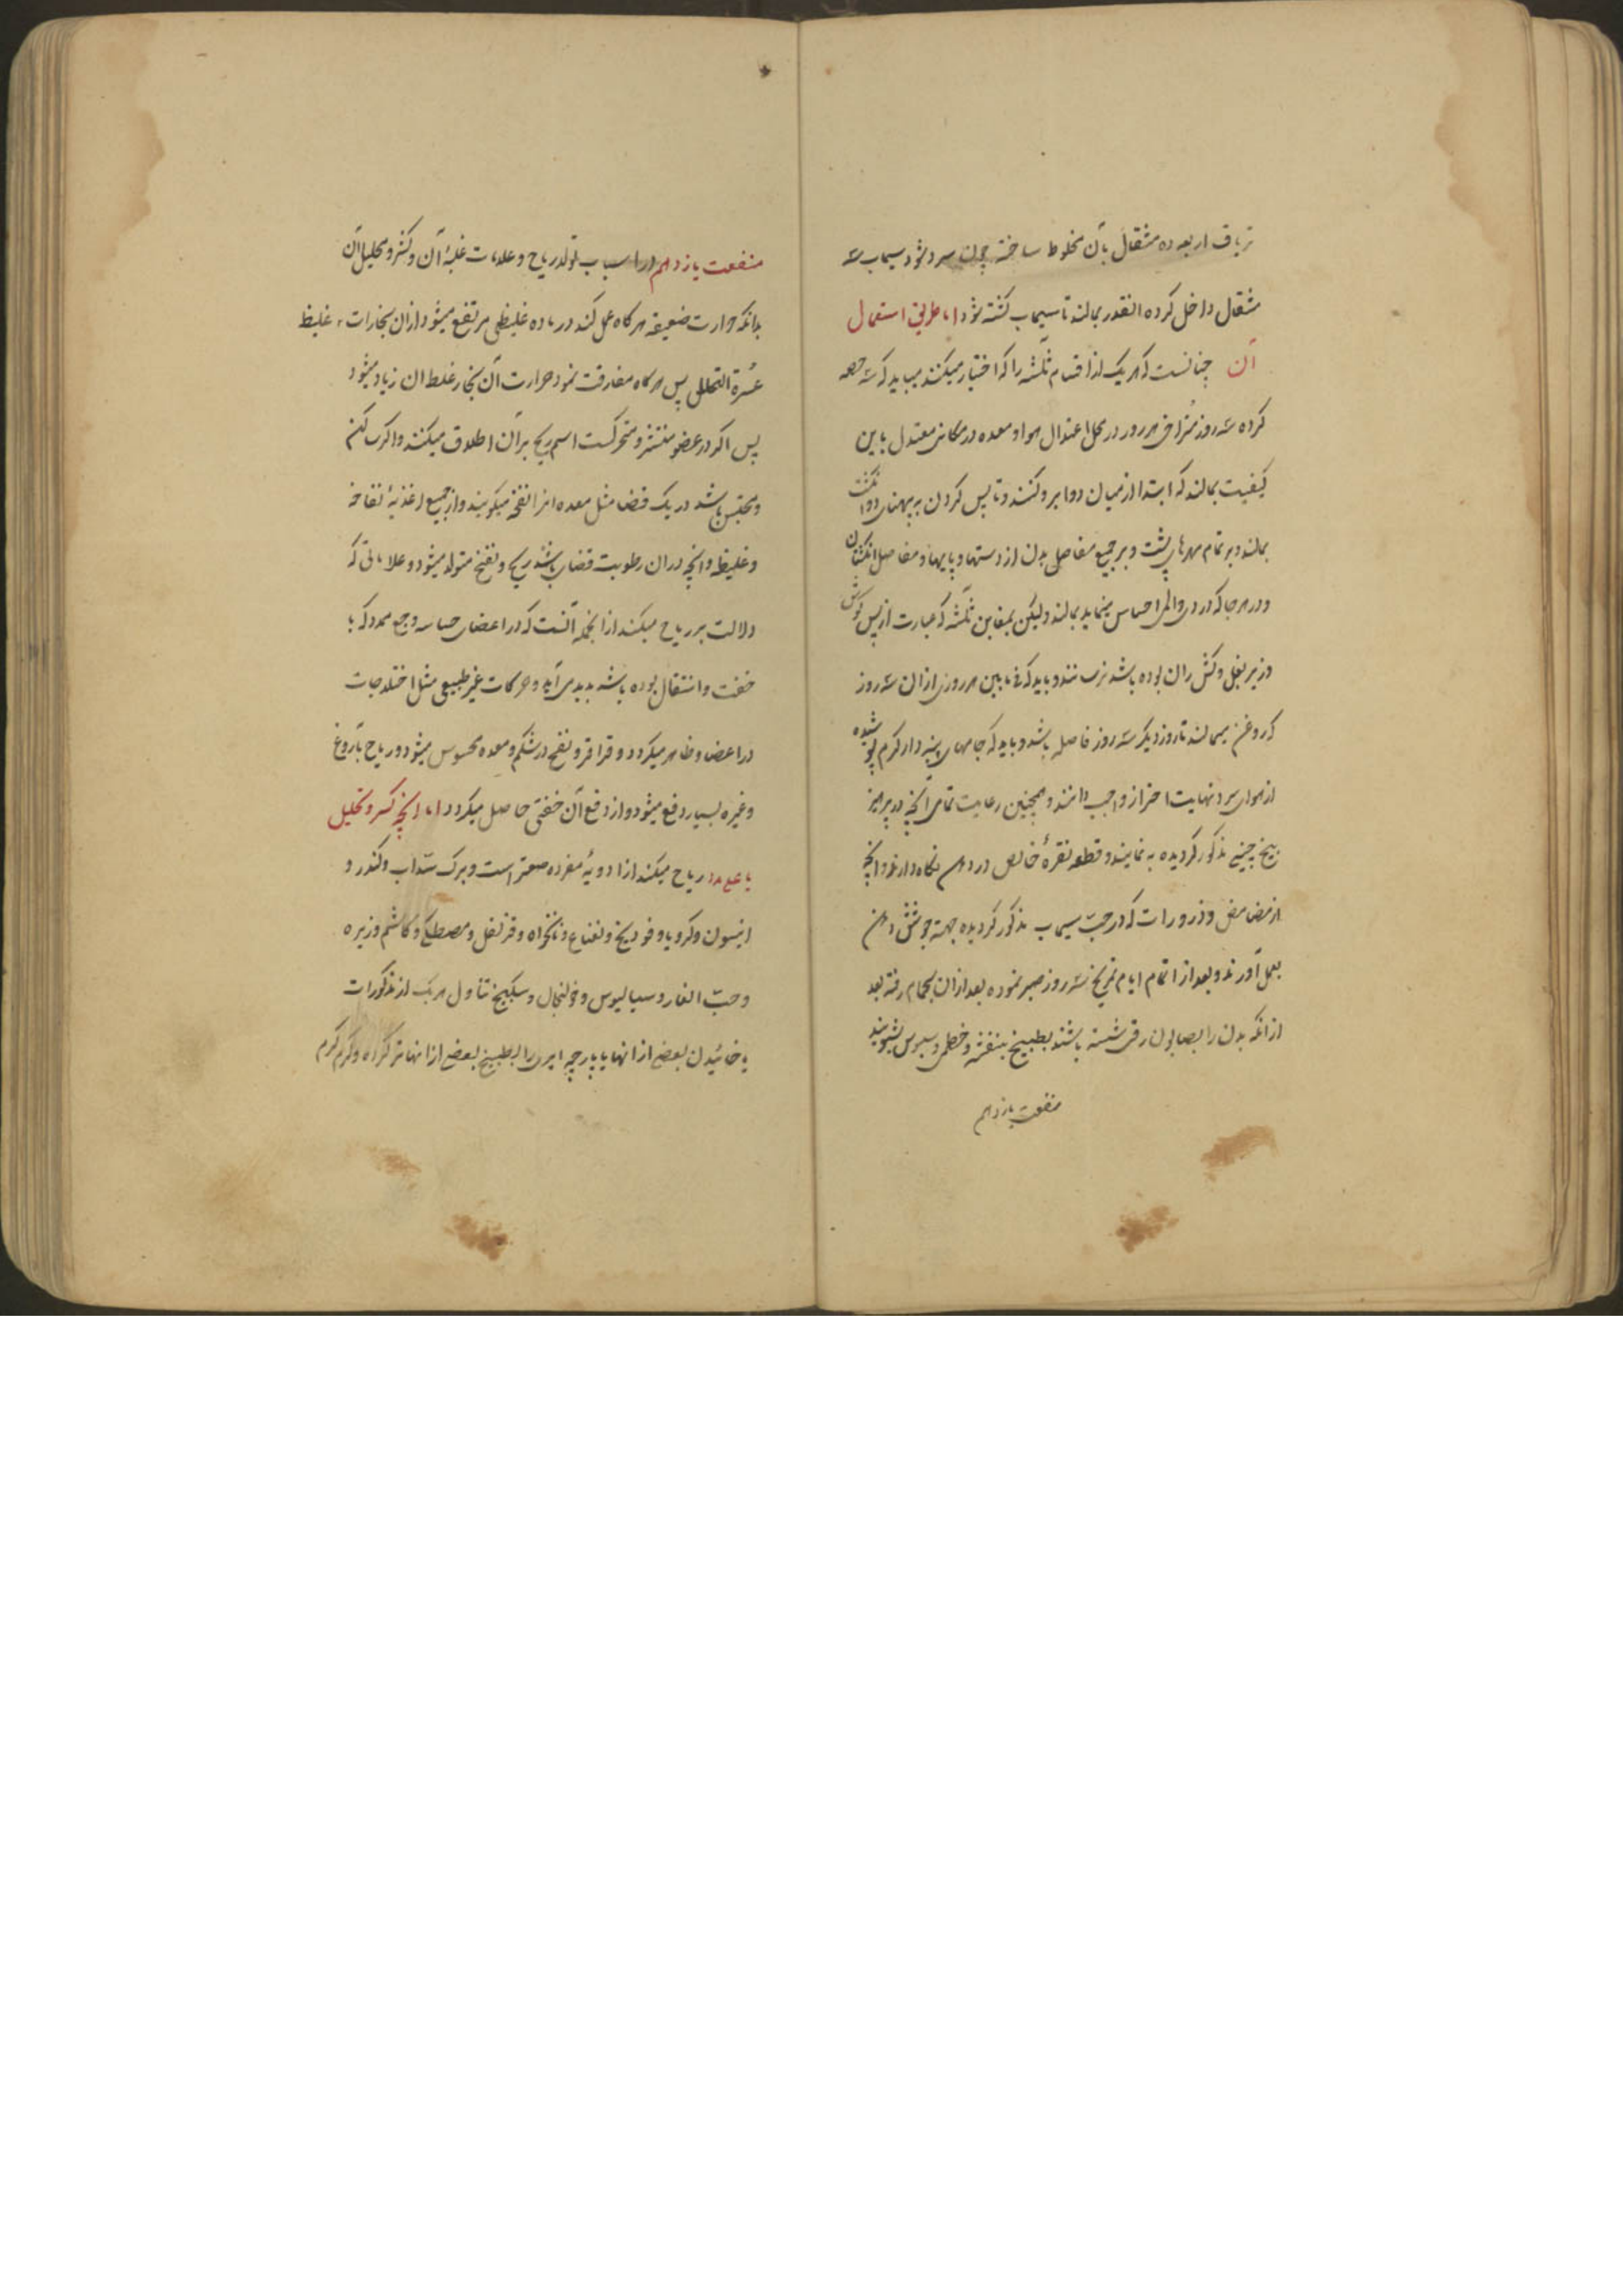 تریاق اربعه ده مثقال بآن مخلوط ساخته چون سرد شود سیماب سه
مثقال داخل کرده انقدر بمالند تا سیماب کشته شود اما طریق استعمال
آن چنانست که هر یک از اقسام ثلثه را که اختیار میکنند میباید که سه حصه
کرده سه روز متوالی هر روز در محل اعتدال هوا و معده در مکانی معتدل باین
کیفیت بمالند که ابتدا از میان دو ابرو کنند و تا پس کردن به پهنای دو انکشت
بمالند و بر تمام مهرهای پشت و بر جمیع مفاصل بدن از دستها و پایها و مفاصل انکشتان
و در هر جا که دردی والمی احساس مینماید بمالند ولیکن بمغابن ثلثه که عبارت از پس کوش
و زیر بغل و کش ران بوده باشد نرسانند و باید که فی مابین هر روزی ازان سه روز
که روغن میمالند تا روز دیکر سه روز فاصله باشد و باید که جامهای پنبه دار کرم پوشیده
از هوای سرد نهایت احتراز واجب دانند و همچنین رعایت تمامی آنچه در پرهیز
بیخ چینی مذکور کردیده به نمایند و قطعه نقرهٔ خالص در دهن نکاه دارند و انچه
از مضامض و ذرورات که در حبّ سیماب مذکور کردیده جهة جوشش دهن
بعمل آورند و بعد از اتمام ایام تمریخ سه روز صبر نموده بعد ازان بحمام رفته بعد
از انکه بدن را بصابون رقی شسته باشند بطبیخ بنفشه و خطمی و سبوس بشویند
منفعت یازدهم
منفعت یازدهم در اسباب تولد ریاح و علامات غلبهٔ آن و کسر و تحلیل آن
بدانکه حرارت ضعیفه هر کاه عمل کند در ماده غلیظی مرتفع میشود ازان بخارات غلیظ
عسرة التحلل پس هر کاه مفارقت نمود حرارت آن بخار غلظ ان زیاد میشود
پس اکر در عضو منتشر و متحرکست اسم ریح بر آن اطلاق میکنند و اکر ساکن
و محتبس باشد در یک فضا مثل معده انرا نفخه میکویند و از جمیع اغذیهٔ نفاخه
و غلیظه و انچه در ان رطوبت فضلی باشد ریح و نفخ متولد میشود و علاماتی که
دلالت بر ریاح میکند از انجمله آنست که در اعضای حساسه وجع ممدد که با
خفت و انتقال بوده باشد پدید می آید و حرکات غیر طبیعی مثل اختلاجات
در اعضا ظاهر میکردد و قراقر و نفخ در شکم و معده محسوس میشود و ریاح بآروغ
و غیره بسیار دفع میشود و از دفع آن خفتی حاصل میکردد اما انچه کسر و تحلیل
ریاح میکند از ادویهٔ مفرده صعتر است و برک سداب و کندر و
انیسون و کرویا و فودیخ و نعناع و نانخواه و قرنفل و مصطکی و کاشم و زیره
و حبّ الغار و سیالیوس و خولنجال و سکبینج تناول هر یک از مذکورات
یا خائیدن بعضی از انها یا پارچه ابری را بطبیخ بعضی از انها تر کردن و کرم کرم